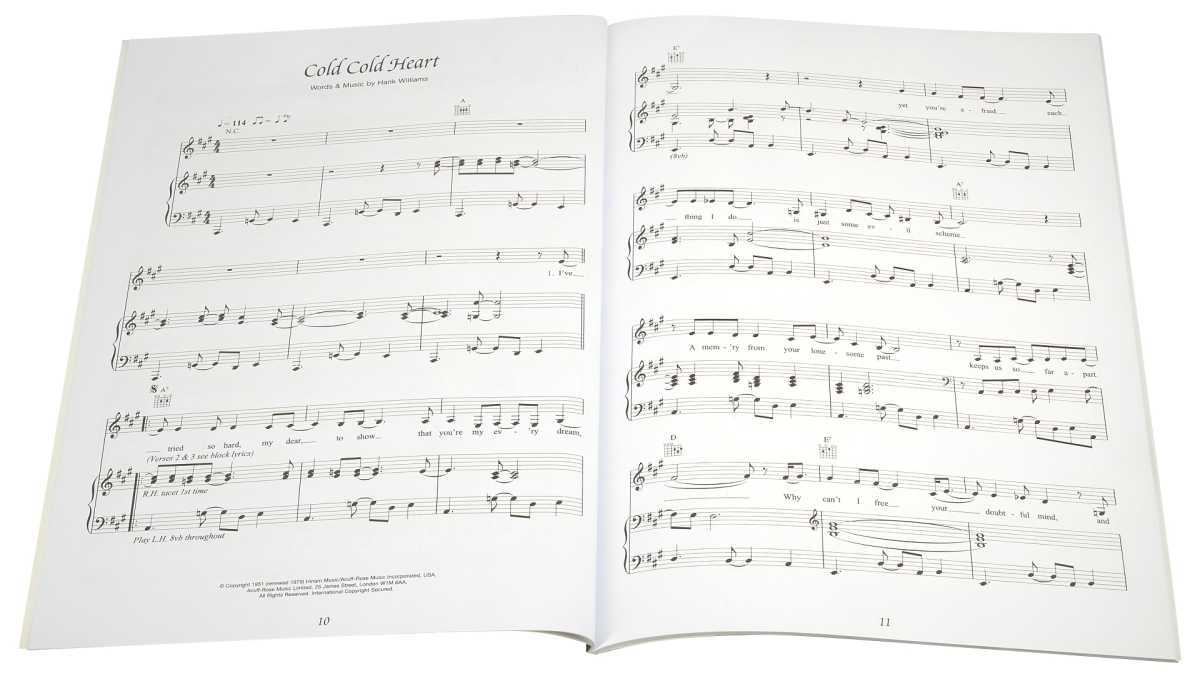 Cold Cold Heart
Words & Music by Hank Williams
♩= 114
N.C.
A
1. I've
A7
tried so hard, my dear, to show that you're my ev - 'ry dream,
(Verses 2 & 3 see block lyrics)
R.H. tacet 1st time
Play L.H. 8vb throughout
© Copyright 1951 (renewed 1979) Hiriam Music/Acuff-Rose Music Incorporated, USA.
Acuff-Rose Music Limited, 25 James Street, London W1M 6AA.
All Rights Reserved. International Copyright Secured.
10
E7
yet you're a - fraid each
(8vb)
A7
thing I do is just some ev - il scheme.
A mem - 'ry from your lone - some past keeps us so far a - part.
D E7
Why can't I free your doubt - ful mind, and
11